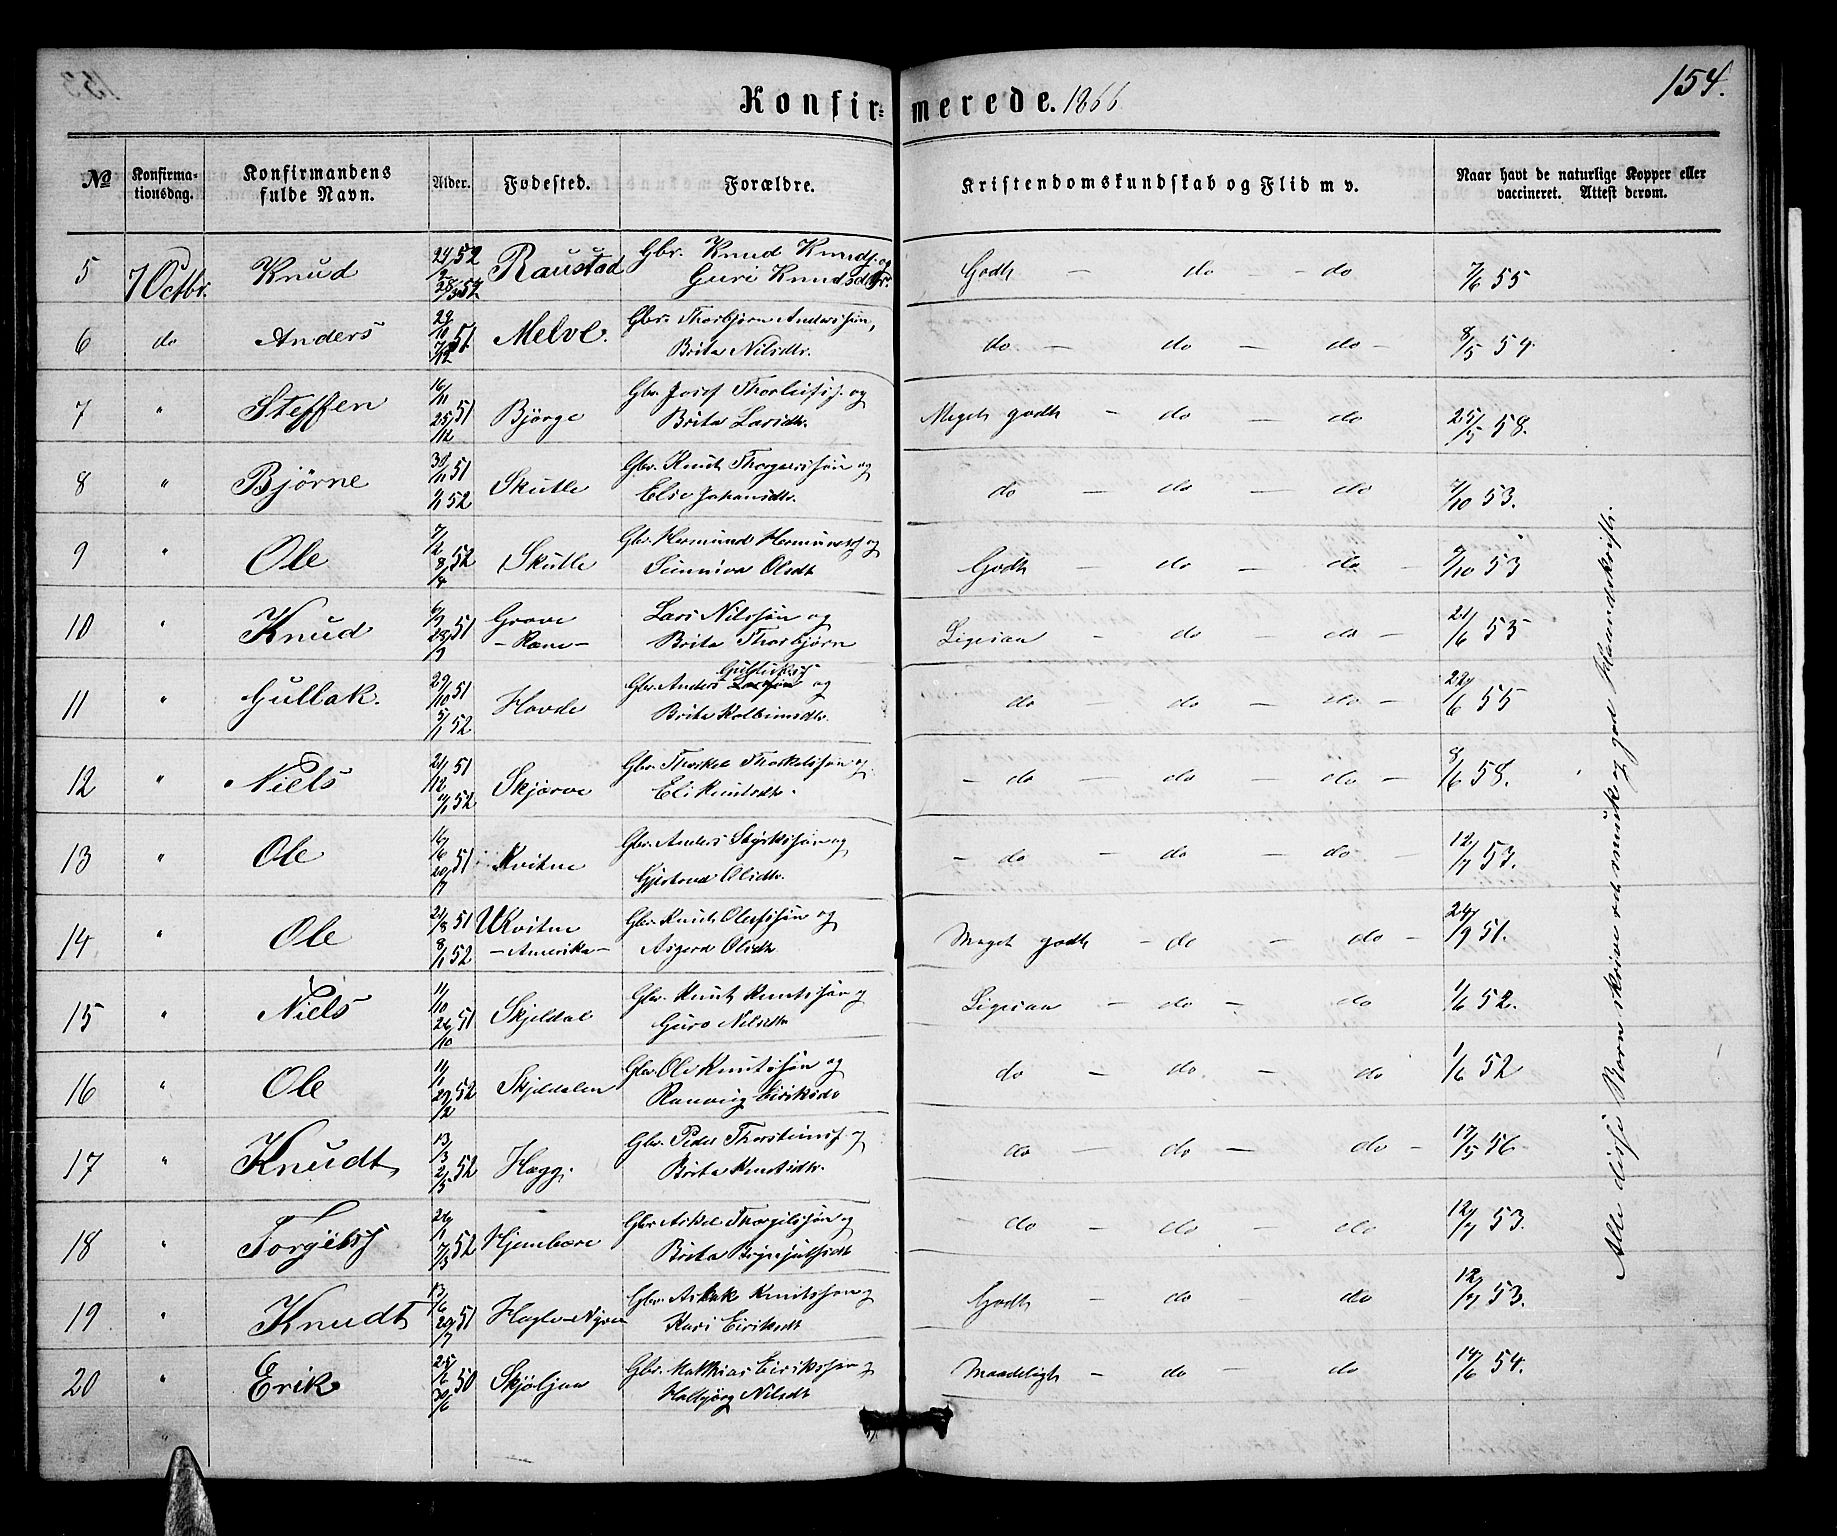 154.
Konfirmerede. 1866
No Konfirmationsdag. Konfirmandens fulde Navn. Alder. Fødested. Forældre. Kristendomskundskab og Flid m v. Naar havt de naturlige Kopper eller vaccineret. Attest derom.
5 7 Octbr. Knud 52 Raustad Gbr. Knud Knuds. og Guri Knudsdtr. Godt – do – do 7/6 55
6 do Anders 29/10 51 Melve. Gbr. Thorbjørn Anderssøn, Brita Nilsdtr. do – do – do – 8/5 54.
7 " Steffen 16/11 51 25/12 Bjørge Gbr. Josef Thorleifs. og Brita Larsdtr. Meget godt – do – do 25/5 58.
8 " Bjørne 30/11 51 52 Skutle Gbr. Knut Thorgeirssøn og Else Johansdtr. do – do – do 7/10 53.
9 " Ole 7/2 52 8/4 Skutle Gbr. Hermund Hermunds. og Sunniva Olsdt Godt – do – do – 7/10 53
10 " Knud 51 Grove – Ræne – Lars Nilssøn og Brita Thorbjørn Ligesaa – do – do – 21/6 55
11 " Gullak. 29/10 51 5/1 52 Hovde Gbr. Anders Gulleiks. og Brita Kolbeinsdtr. do – do – do – 22/6 55
12 " Niels 21/12 51 52 Skjerve Gbr. Thorkel Thorkelssøn og Eli Knutsdtr. – do – do – do – 8/6 58.
13 " Ole 16/6 51 20/7 Kvitne Gbr. Anders Styrkssøn og Gjertrud Olsdtr. – do – do – do – 12/7 53.
14 " Ole 21/8 51 8/1 52 Ukvitne – Amerika – Gbr. Knut Olafssøn og Asgerd Olsdtr Meget godt – do – do – 24/9 51.
15 " Niels 11/10 51 26/10 Skjeldal Gbr. Knut Knutssøn og Guro Nilsdtr Ligesaa – do – do 1/6 52.
16 " Ole 11/1 52 29/2 Skjeldalen Gbr. Ole Knutssøn og Ranveig Eiriksdtr do – do – do 1/6 52
17 " Knudt 13/3 52 2/5 Hægg. Gbr. Peder Thorsteins. og Brita Knutsdtr. do – do – do – 17/5 56
18 " Torgils 26/1 52 7/3 Hjembore Gbr. Askel Thorgilssøn og Brita Brynjulfsdt – do – do – do 12/7 53.
19 " Knudt 13/6 51 20/7 Gbr. Aslak Knutssøn og Kari Eiriksdt Godt – do – do 12/7 53.
20 " Erik 25/5 50 Gbr. Mathias Eirikssøn og Halbjørg Nilsdt Maadeligt – do – do 14/6 54.
Alle disse Børn skrive god Haandskrift.